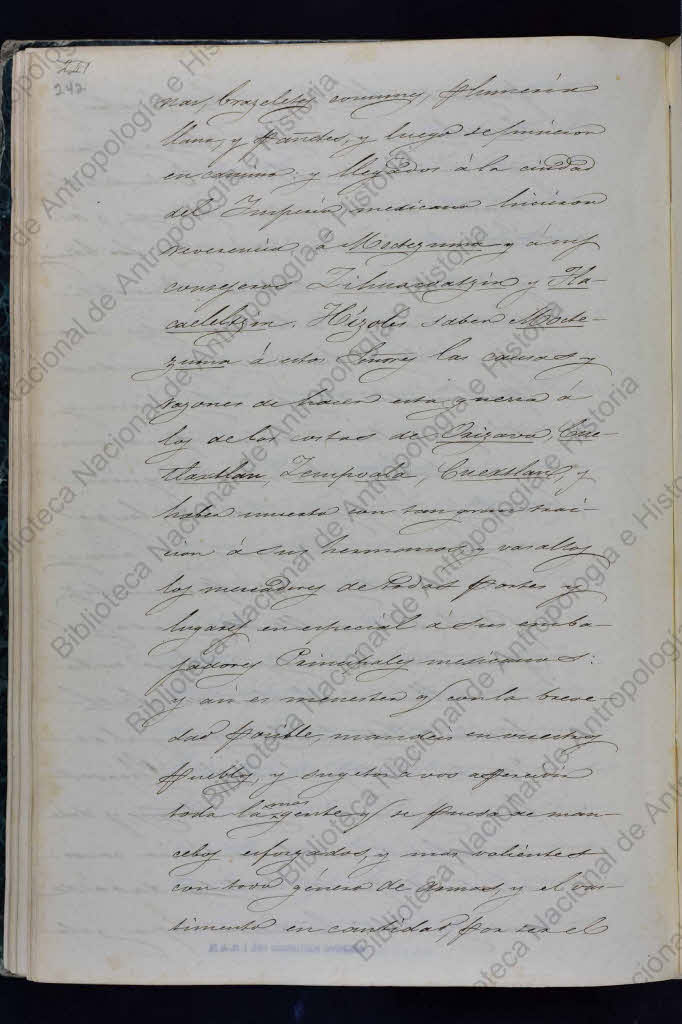 241
242
nas, brazeletes comunes, plumeria
llana, y pañetes, y luego se pusieron
en camino: y llegados á la ciudad
del Imperio mexicano hicieron
reverencia á Moctezuma y á sus
consejeros Zihuacatzin y Tla-
caeleltzin. Hízoles saber Mocte-
zuma á estos Sres. las causas y
razones de hacer esta guerra á
los de las costas de Orizava, Cue-
tlaxtlan, Zempoala, Cuextlan, y
haber muerto con tan gran trai-
cion á sus hermanos, y vasallos
los mercaderes de todas partes y
lugares en especial á sus emba-
jadores Principales mexicanos:
y asi es menester q/ con la breve-
dad posible, mandeis en vuestros
Pueblos, y sugetos á vos aperciban
toda la mas gente q/ se pueda de man-
cebos esforzados, y mas valientes
con todo género de armas, y el vas-
timento en cantidad, por ser el
Biblioteca Nacional de Antropología e Historia